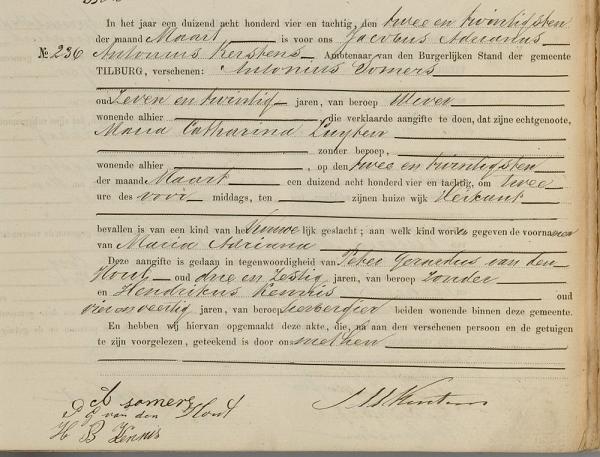 In het jaar een duizend acht honderd vier en tachtig, den twee en twintigsten
der maand Maart is voor ons Jacobus Adrianus
No. 236 Antonius Kerstens, Ambtenaar van den Burgerlijken Stand der gemeente
TILBURG, verschenen: Antonius Somers
oud Zeven en twintig jaren, van beroep Wever
wonende alhier, die verklaarde aangifte te doen, dat zijne echtgenoote,
Maria Catharina Luyten
zonder beroep,
wonende alhier, op den twee en twintigsten
der maand Maart een duizend acht honderd vier en tachtig, om twee
ure des voor middags, ten zijnen huize wijk Heikant
bevallen is van een kind van het Vrouwelijk geslacht; aan welk kind worden gegeven de voornamen
van Maria Adriana
Deze aangifte is gedaan in tegenwoordigheid van Peter Gerardus van den
Hout oud drie en Zestig jaren, van beroep Zonder
en Hendrikus Kennis oud
vier en veertig jaren, van beroep herbergier beiden wonende binnen deze gemeente.
En hebben wij hiervan opgemaakt deze akte, die, na aan den verschenen persoon en de getuigen
te zijn voorgelezen, geteekend is door ons met hen
A somers
P G van den Hout
H B Kennis